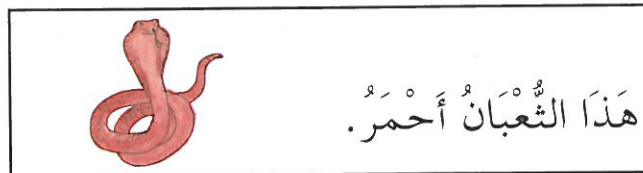 هَذَا الثُّعْبَانُ أَحْمَرُ.